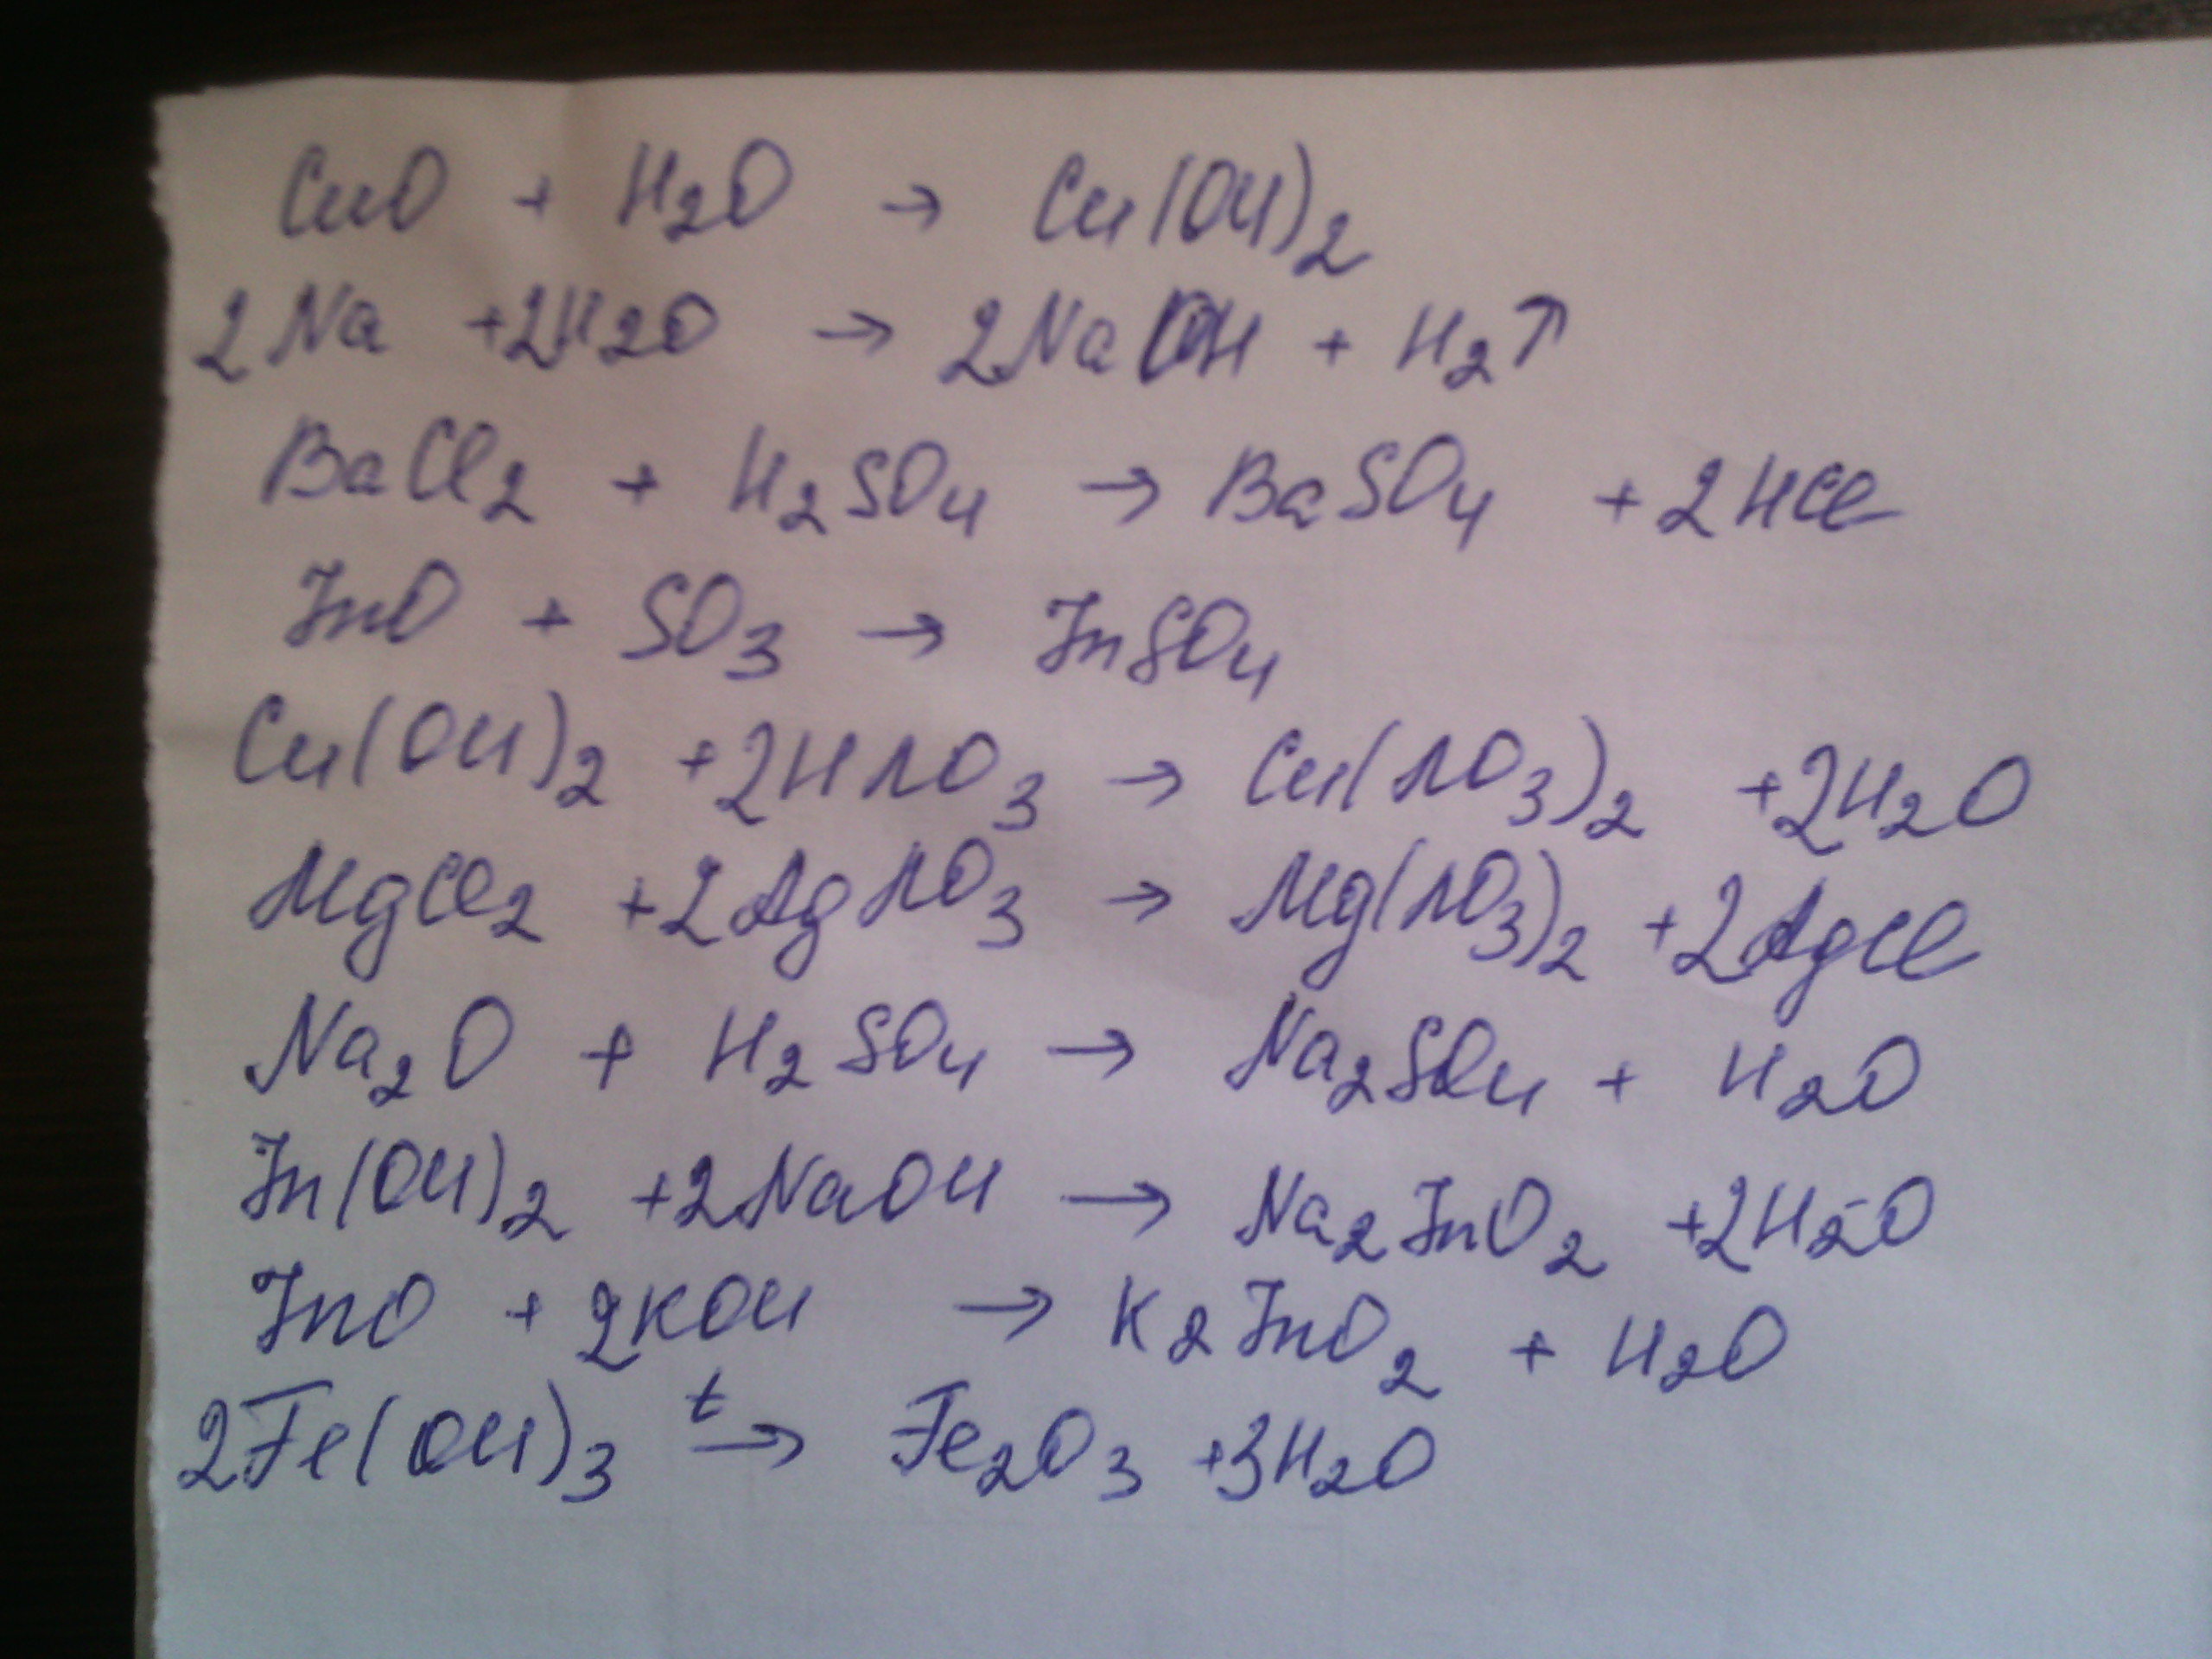 CuO + H2O → Cu(OH)2
2Na +2H2O → 2NaOH + H2↑
BaCl2 + H2SO4 → BaSO4 +2HCl
ZnO + SO3 → ZnSO4
Cu(OH)2 +2HNO3 → Cu(NO3)2 +2H2O
MgCl2 +2AgNO3 → Mg(NO3)2 +2AgCl
Na2O + H2SO4 → Na2SO4 + H2O
Zn(OH)2 +2NaOH → Na2ZnO2 +2H2O
ZnO + 2KOH → K2ZnO2 + H2O
2Fe(OH)3 t→ Fe2O3 +3H2O